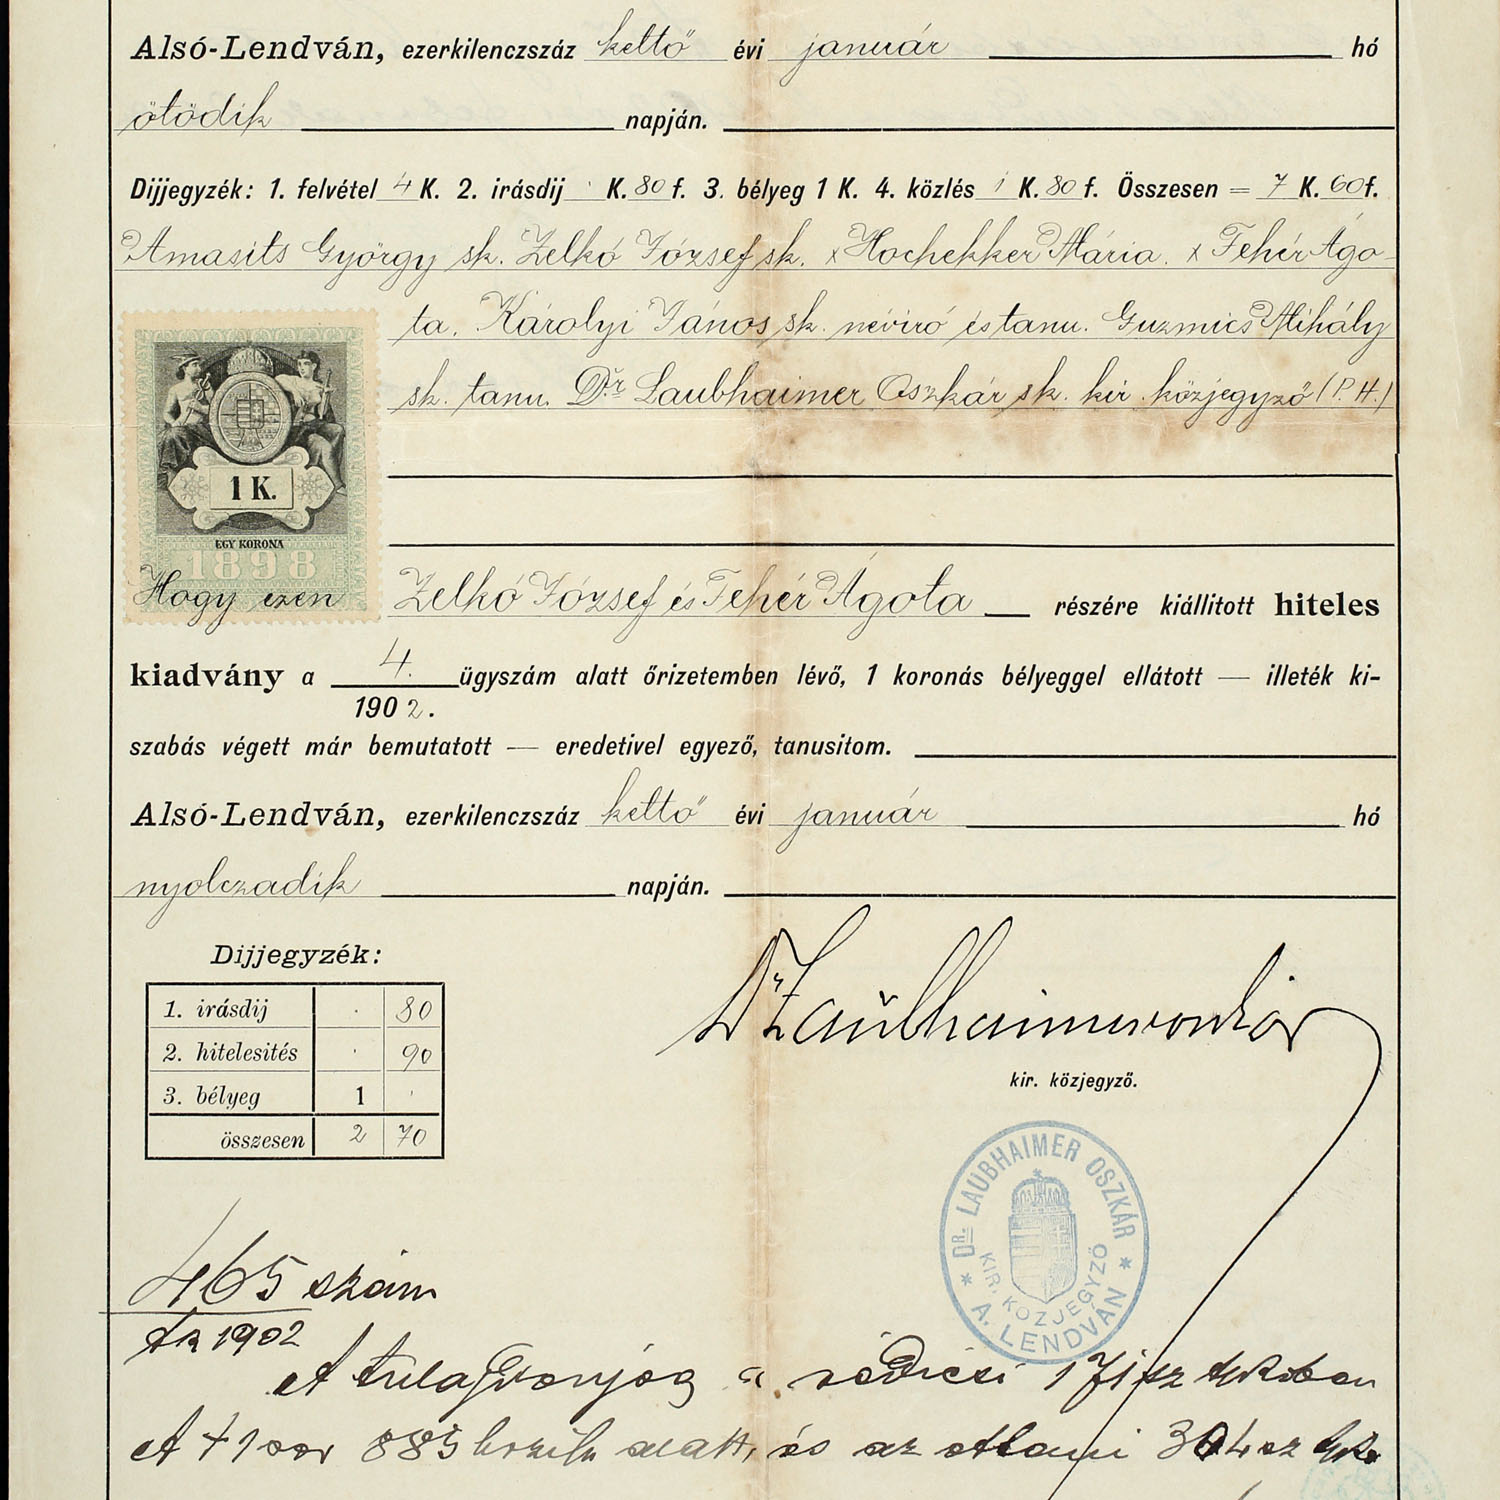 Alsó-Lendván, ezerkilenczszáz kettő évi január hó
ötödik napján.
Dijjegyzék: 1. felvétel 4 K. 2. irásdij · K. 80 f. 3. bélyeg 1 K. 4. közlés 1 K. 80 f. Összesen = 7 K. 60 f.
Amasits György sk. Zelkó József sk. x Hochekker Mária. x Fehér Ágo-
ta. Károlyi János sk. névíró és tanu. Guzmics Mihály
sk. tanu. Dr. Laubhaimer Oszkár sk. kir. közjegyző (P. H.)
1 K.
EGY KORONA
1898
Hogy ezen Zelkó József és Fehér Ágota részére kiállitott hiteles
kiadvány a 4. ügyszám alatt őrizetemben lévő, 1 koronás bélyeggel ellátott — illeték ki-
1902.
szabás végett már bemutatott — eredetivel egyező, tanusitom.
Alsó-Lendván, ezerkilenczszáz kettő évi január hó
nyolczadik napján.
Dijjegyzék:
1. irásdij · 80
2. hitelesités · 90
3. bélyeg 1 ·
összesen 2 70
Dr Laubhaimer Oszkár
kir. közjegyző.
DR. LAUBHAIMER OSZKÁR
KIR. KÖZJEGYZŐ
* A. LENDVÁN *
465 szám
tk 1902
A tulajdonjog a rédicsi 171 sz
A + 1 sor 885 hrszlu alatt, és az ottani 304 sz